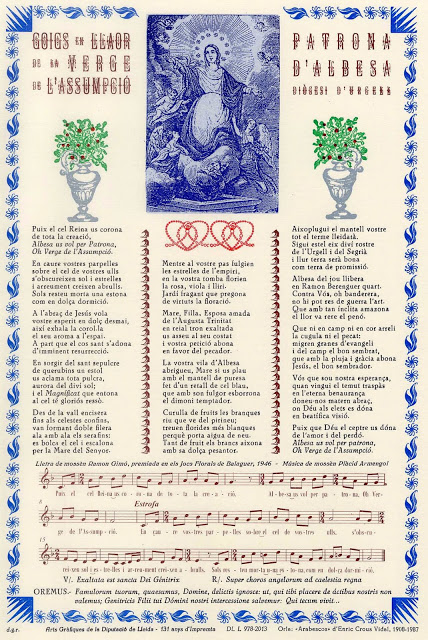 GOIGS EN LLAOR
DE LA VERGE
DE L'ASSUMPCIÓ
PATRONA
D'ALBESA
DIÒCESI D'URGELL
Puix el cel Reina us corona
de tota la creació,
Albesa us vol per Patrona,
Oh Verge de l'Assumpció.
En caure vostres parpelles
sobre el cel de vostres ulls
s'obscureixen sol i estrelles
i arreument creixen abrulls.
Sols resteu morta una estona
com en dolça dormició.
A l'abraç de Jesús vola
vostre esperit en dolç desmai,
així exhala la corol.la
el seu aroma a l'espai.
A part que el cos sant s'adona
d'imminent resurrecció.
En sorgir del sant sepulcre
de querubins un estol
us aclama tota pulcra,
aurora del diví sol;
i el Magníficat que entona
el cel té gloriós ressò.
Des de la vall encisera
fins als celestes confins,
van formant doble filera
ala amb ala els serafins:
es bolca el cel i escalona
per la Mare del Senyor.
Mentre al vostre pas fulgien
les estrelles de l'empiri,
en la vostra tomba florien
la rosa, viola i lliri.
Jardí fragant que pregona
de virtuts la floració.
Mare, Filla, Esposa amada
de l'Augusta Trinitat
en reial tron exaltada
us asseu al seu costat
i vostra petició abona
en favor del pecador.
La vostra vila d'Albesa
abrigueu, Mare si us plau
amb el mantell de puresa
fet d'un retall de cel blau,
que amb son fulgor esborrona
el dimoni temptador.
Curulla de fruits les branques
riu que ve del pirineu;
treuen florides més blanques
perquè porta aigua de neu.
Tant de fruit els brancs aixona
amb sa dolça pesantor.
Aixoplugui el mantell vostre
tot el terme lleidatà.
Sigui estel eix diví rostre
de l'Urgell i del Segrià
i llur terra serà bona
com terra de promissió.
Albesa del jou llibera
en Ramon Berenguer quart.
Contra Vós, oh banderera,
no hi pot res de guerra l'art.
Que amb tan ínclita amazona
el llor va rere el penó.
Que ni en camp ni en cor arreli
la cugula ni el pecat:
migren granes d'evangeli
i del camp el bon sembrat,
que amb la pluja i gràcia abona
Jesús, el bon sembrador.
Vós que sou nostra esperança,
quan vingui el temut traspàs
en l'eterna benaurança
doneu-nos matern abraç,
on Déu als elets es dóna
en beatífica visió.
Puix que Déu el ceptre us dóna
de l'amor i del perdó.
Albesa us vol per patrona,
Oh Verge de l'Assumpció.
Lletra de mossèn Ramon Gimó, premiada en els Jocs Florals de Balaguer, 1946 - Música de mossèn Plàcid Armengol
Puix el cel Rei-na us co-ro-na de to-ta la cre-a-ció, Al-be-sa us vol per pa-tro-na, Oh Ver-
8
Estrofa
ge de l'As-sump-ció. En cau-re vos-tres par-pe-lles so-bre el cel de vos-tres ulls s'obs-cu-
15
rei-xen sol i es-tre-lles i ar-reu-ment crei-xen a-brulls. Sols res-teu mor-ta u-na es-to-na, com en dol-ça dor-mi-ció.
V/. Exaltata est sancta Dei Génitrix R/. Super choros angelorum ad caelestia regna
OREMUS.- Famulorum tuorum, quaesumus, Domine, delictis ignosce: ut, qui tibi placere de áctibus nostris non
valemus; Genitricis Filii tui Dómini nostri intercessione salvemur: Qui tecum vivit...
d.g.r. Arts Gràfiques de la Diputació de Lleida - 131 anys d'Impremta DL L 978-2013 Orla: «Arabescos» d'Enric Crous Vidal, 1908-1987